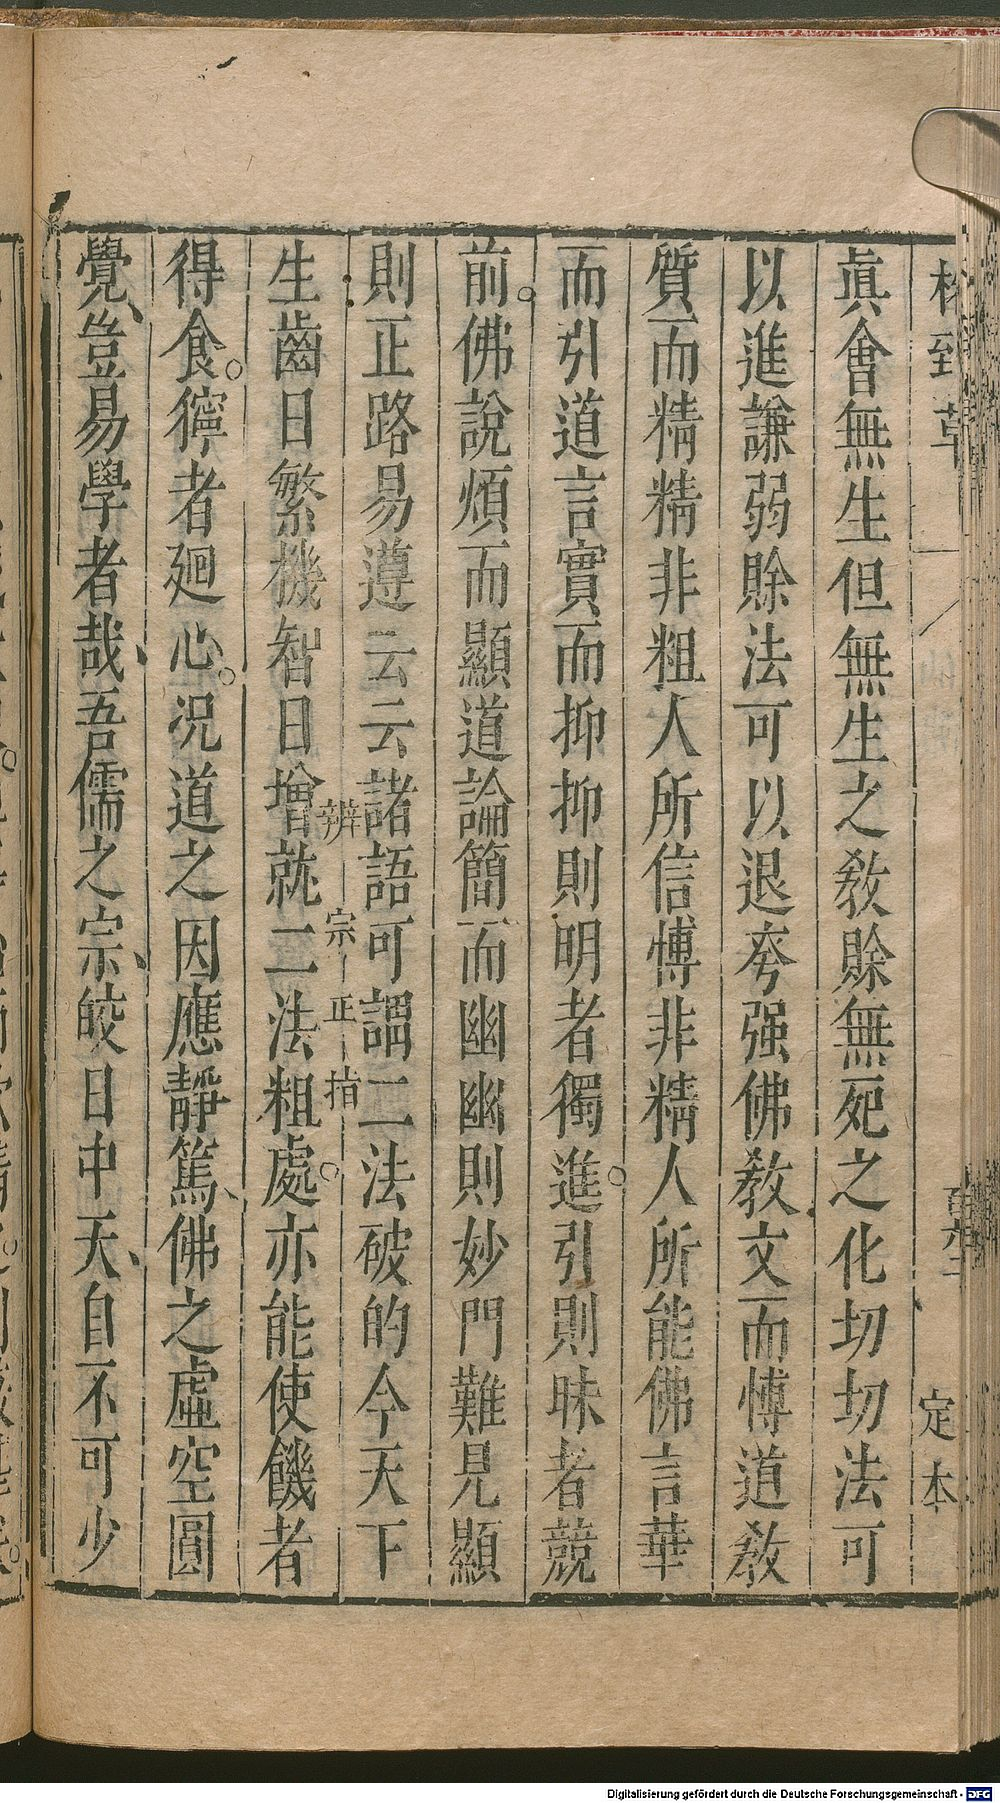 格致草
定本
真會無生但無無生之敎賒無死之化切切法可
以進謙弱賒法可以退夸强佛敎文而博道敎
質而精精非粗人所信博非精人所能佛言華
而引道言實而抑抑則明者獨進引則昧者競
前佛說煩而顯道論簡而幽幽則妙門難見顯
則正路易遵云云諸語可謂二法破的今天下
辨宗正指
生齒日繁機智日增就二法粗處亦能使饑者
得食獰者廻心况道之因應靜篤佛之虛空圓
覺豈易學者哉吾儒之宗皎日中天自不可少
Digitalisierung gefördert durch die Deutsche Forschungsgemeinschaft - DFG